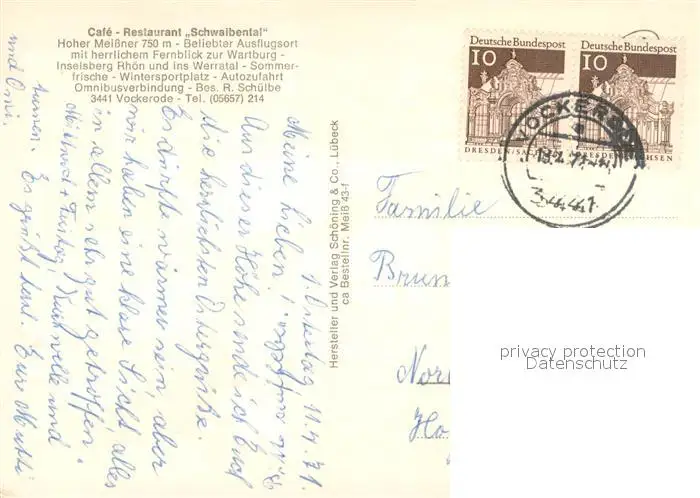 Café - Restaurant „Schwalbental"
Hoher Meißner 750 m - Beliebter Ausflugsort
mit herrlichem Fernblick zur Wartburg -
Inselsberg Rhön und ins Werratal - Sommer-
frische - Wintersportplatz - Autozufahrt
Omnibusverbindung - Bes. R. Schülbe
3441 Vockerode - Tel. (05657) 214
1. Ostertag 11.4.71
Meine Lieben!
Aus dieser Höhe sende ich Euch
die herzlichsten Ostergrüße.
Es dürfte wärmer sein, aber
wir haben eine klare Sicht, alles
in allem sehr gut getroffen.
und
Es grüßt herzl. Eure Mutti
und Omi.
Hersteller und Verlag Schöning & Co., Lübeck
ca Bestellnr. Meiß 43-f
Deutsche Bundespost
10
DRESDEN/SACHSEN
Deutsche Bundespost
10
DRESDEN/SACHSEN
VOCKERODE
3441
Familie
Brun
Nor
Ho
privacy protection
Datenschutz